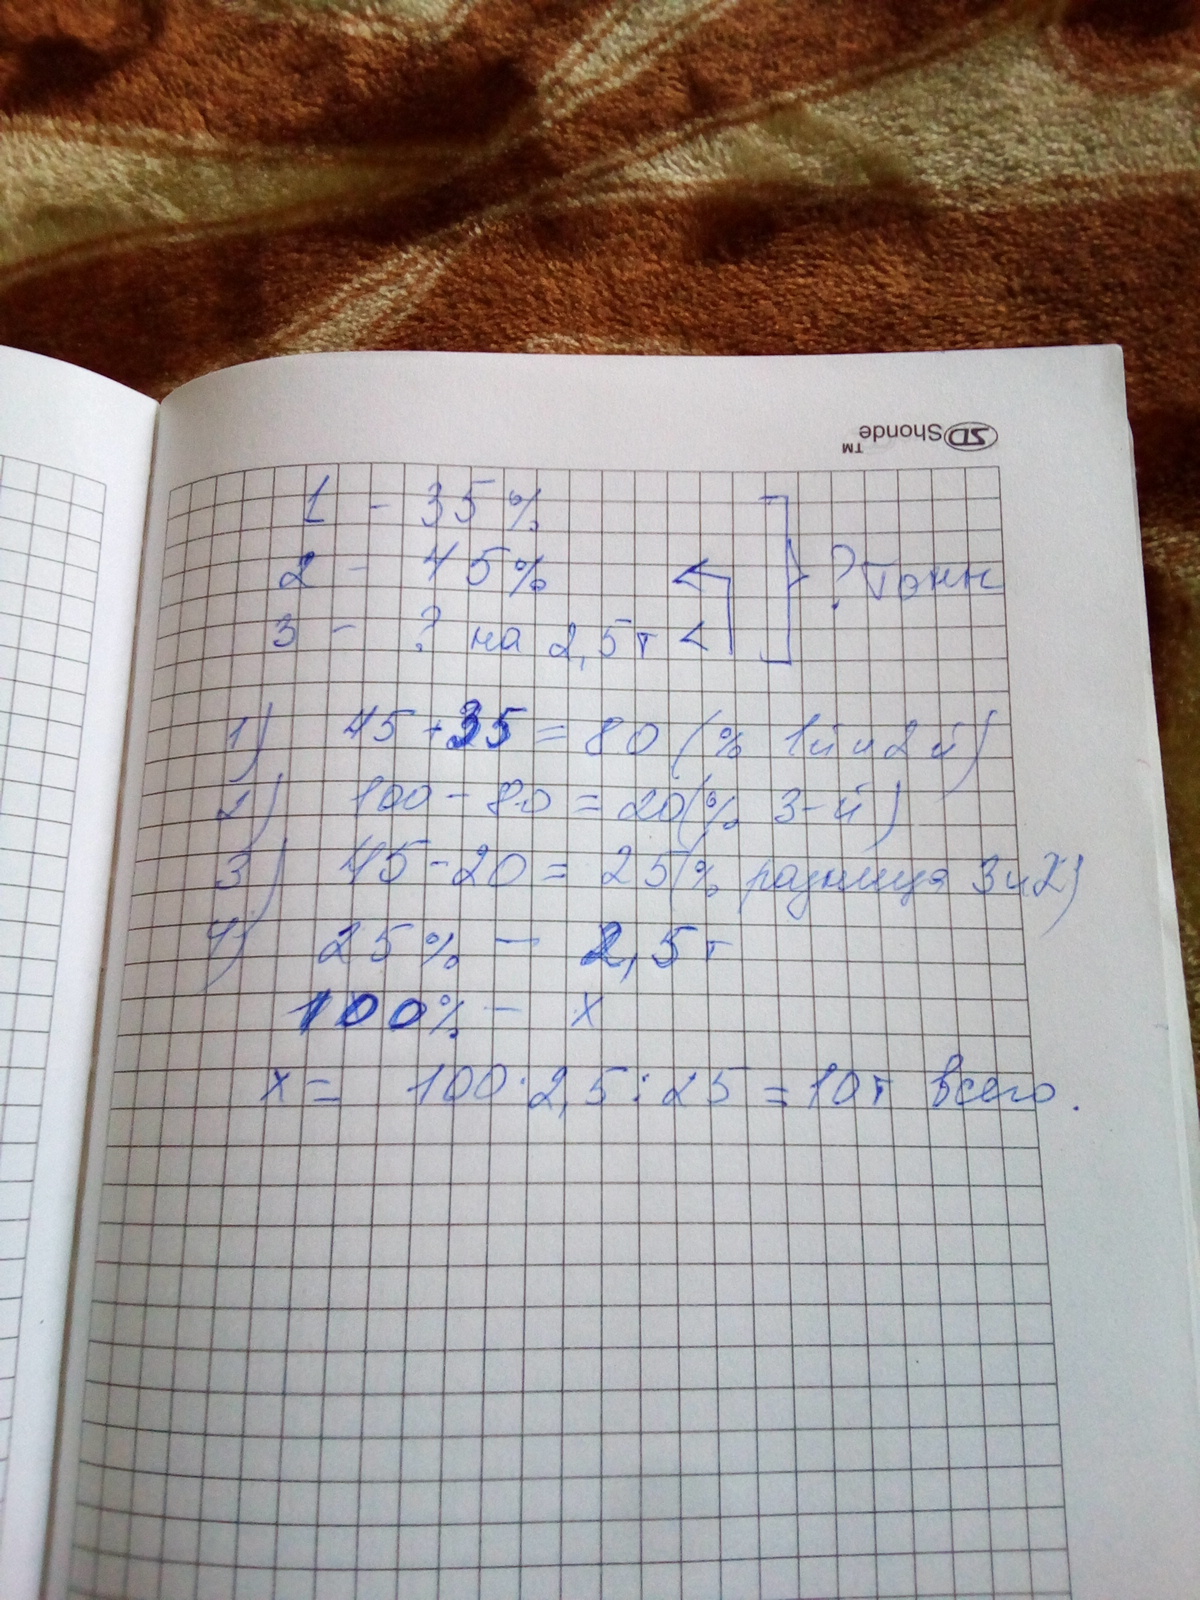 SD Shonde™
1 - 35%
2 - 45%
3 - ? на 2,5т <
? Тонн
1) 45+35=80 (% 1й и 2й)
2) 100-80=20(% 3-й)
3) 45-20=25(% разница 3 и 2)
4) 25% - 2,5т
100% - x
x= 100·2,5:25=10т всего.